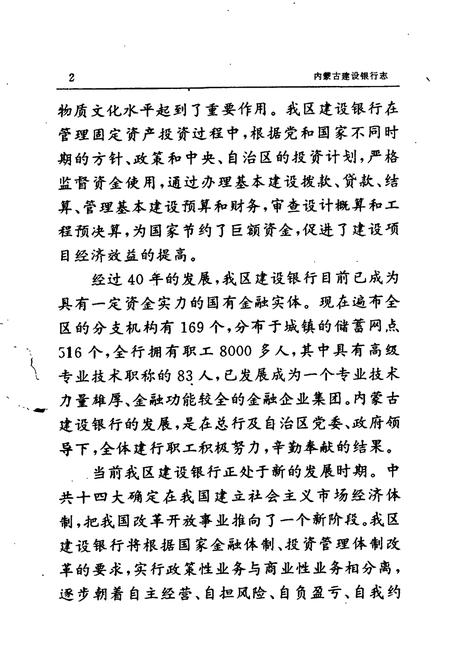 2 内蒙古建设银行志
物质文化水平起到了重要作用。我区建设银行在
管理固定资产投资过程中,根据党和国家不同时
期的方针、政策和中央、自治区的投资计划,严格
监督资金使用,通过办理基本建设拨款、贷款、结
算、管理基本建设预算和财务,审查设计概算和工
程预决算,为国家节约了巨额资金,促进了建设项
目经济效益的提高。
经过 40 年的发展,我区建设银行目前已成为
具有一定资金实力的国有金融实体。现在遍布全
区的分支机构有 169 个,分布于城镇的储蓄网点
516 个,全行拥有职工 8000 多人,其中具有高级
专业技术职称的 83 人,已发展成为一个专业技术
力量雄厚、金融功能较全的金融企业集团。内蒙古
建设银行的发展,是在总行及自治区党委、政府领
导下,全体建行职工积极努力,辛勤奉献的结果。
当前我区建设银行正处于新的发展时期。中
共十四大确定在我国建立社会主义市场经济体
制,把我国改革开放事业推向了一个新阶段。我区
建设银行将根据国家金融体制、投资管理体制改
革的要求,实行政策性业务与商业性业务相分离,
逐步朝着自主经营、自担风险、自负盈亏、自我约